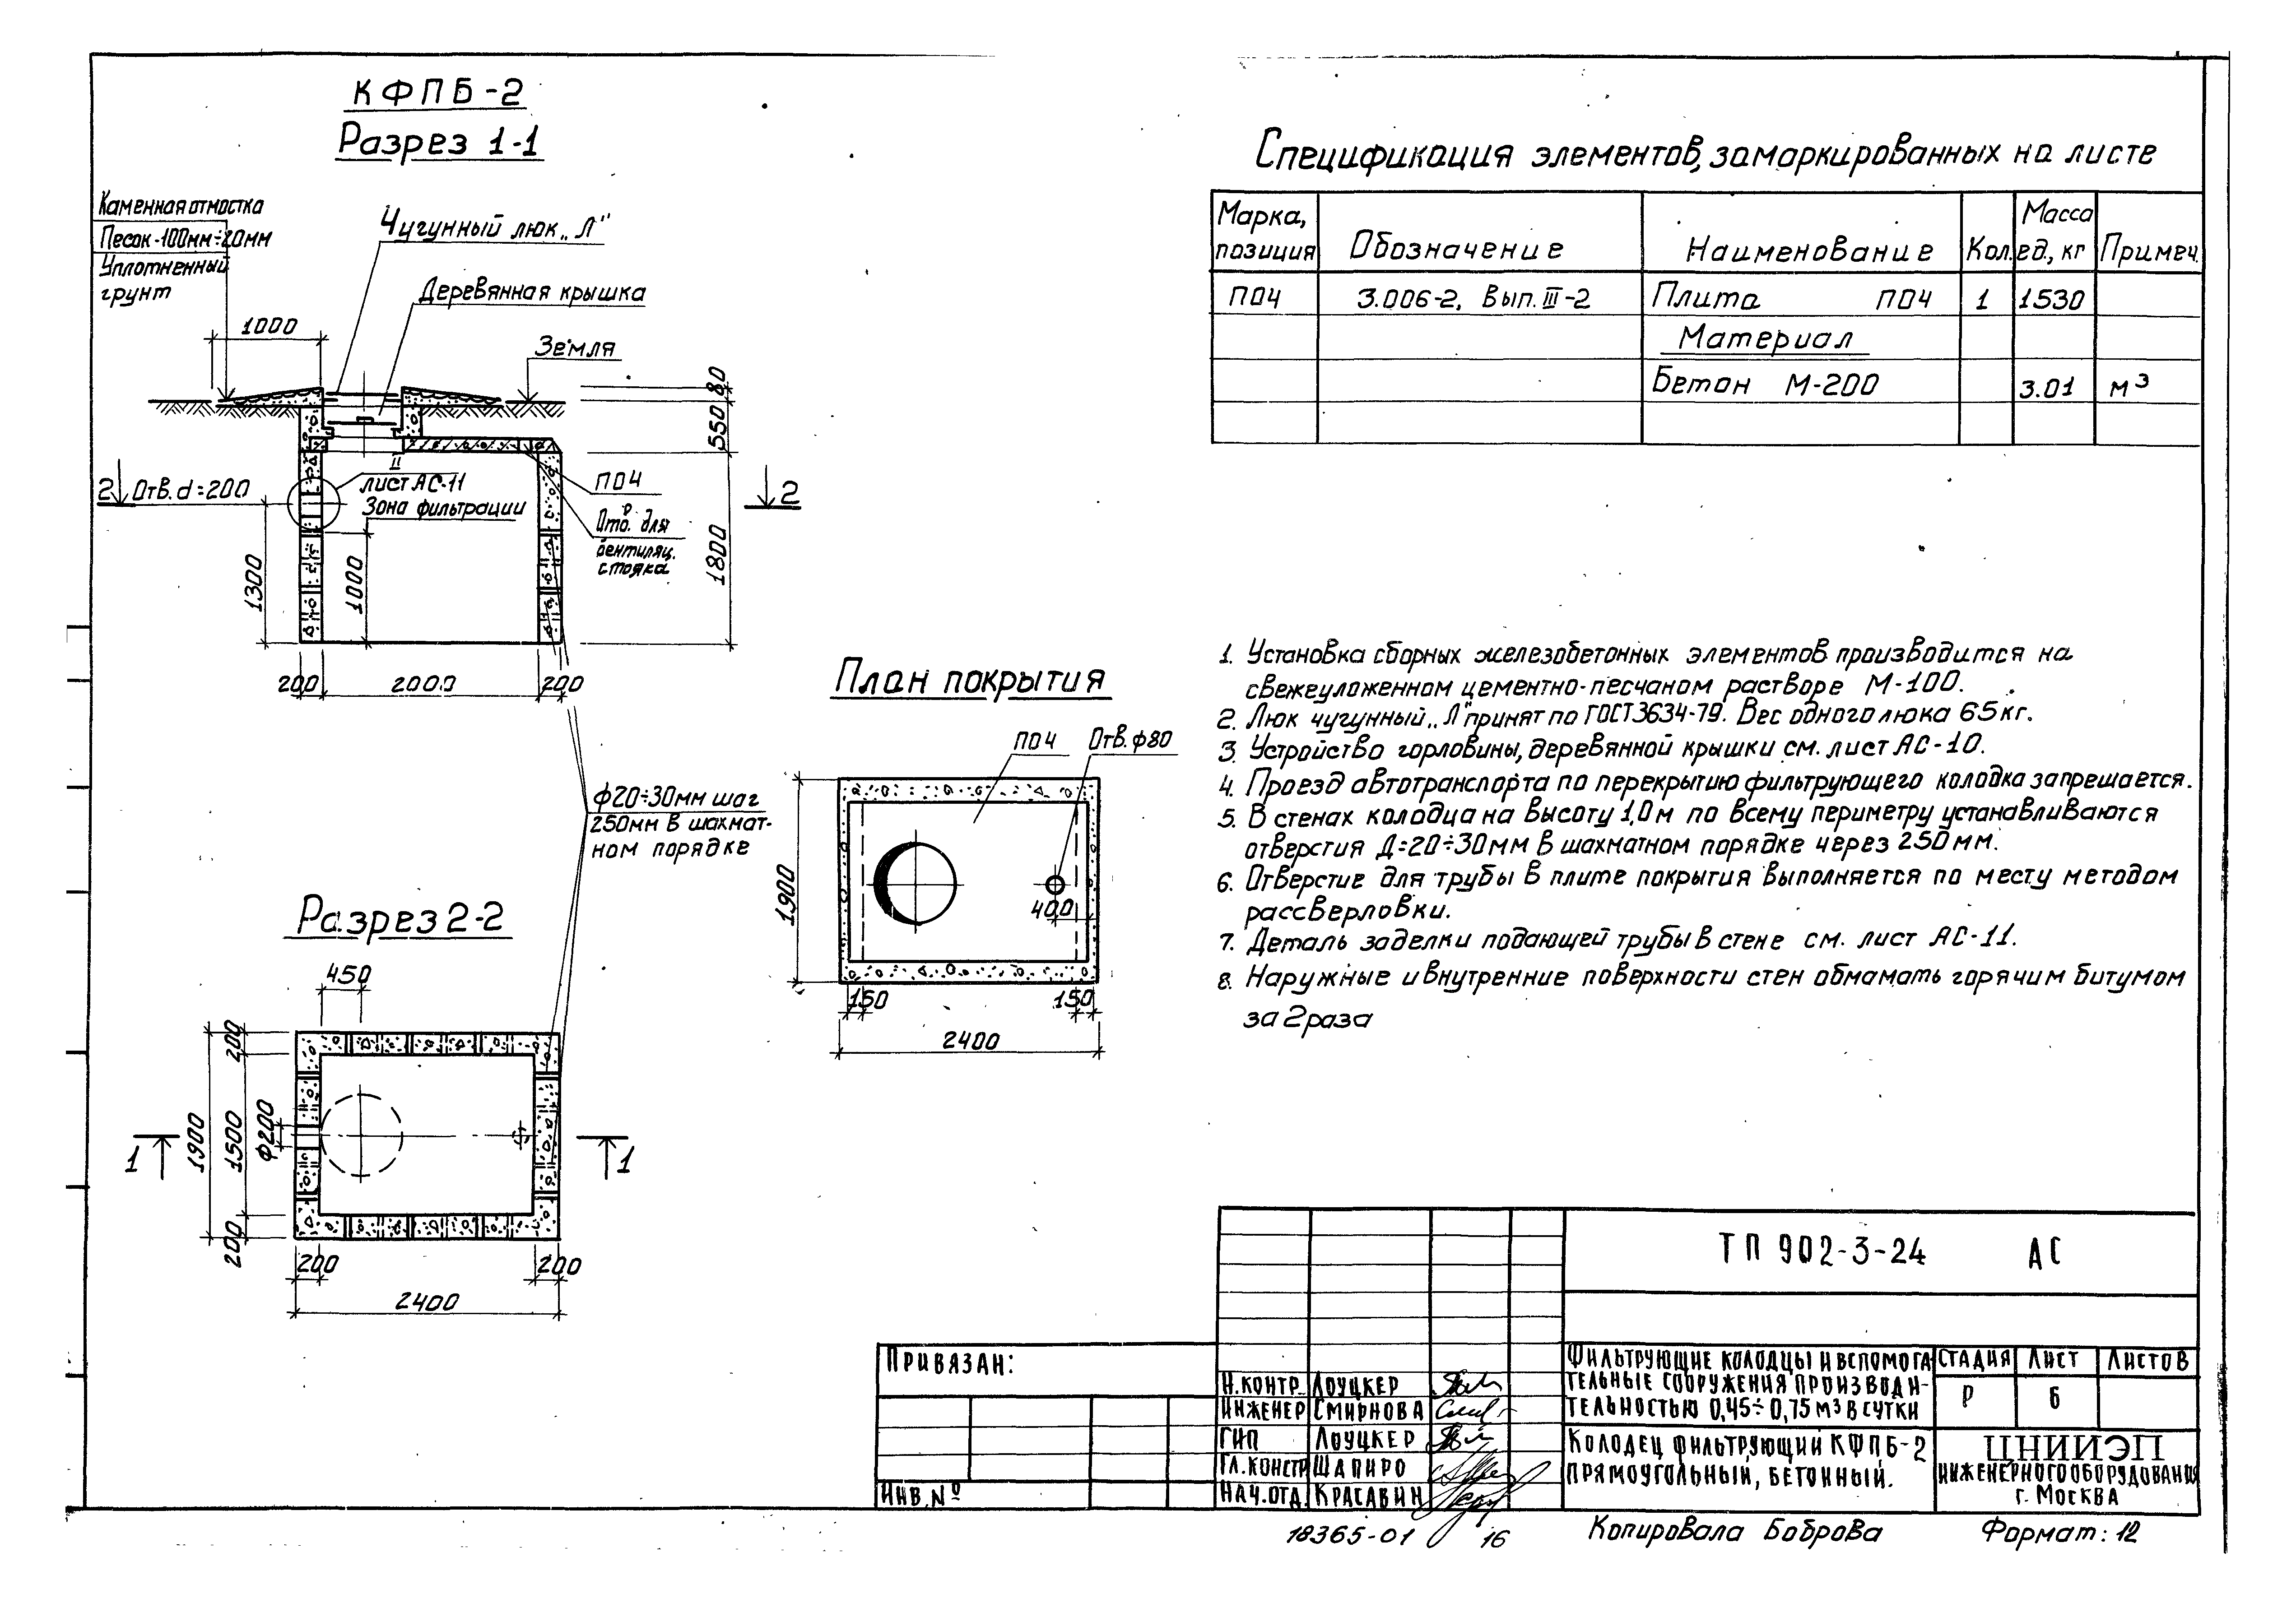 КФПБ-2
Разрез 1-1
Каменная отмостка
Песок-100мм÷20мм
Уплотненный
грунт
Чугунный люк „Л"
Деревянная крышка
1000
Земля
80
550
1800
II
лист АС-11
2 Отв. d=200
Зона фильтрации
ПО4
2
Отв. для
вентиляц.
стояка
1300
1000
200
2000
200
ф20÷30мм шаг
250мм в шахмат-
ном порядке
План покрытия
ПО4
Отв. ф80
1900
400
150
150
2400
Разрез 2-2
450
200
1900
1500
ф200
200
1
1
200
200
2400
Спецификация элементов, замаркированных на листе
Марка, позиция
Обозначение
Наименование
Кол.
Масса ед., кг
Примеч.
ПО4 3.006-2, Вып. III-2 Плита ПО4 1 1530
Материал
Бетон М-200 3.01 м³
1. Установка сборных железобетонных элементов производится на
свежеуложенном цементно-песчаном растворе М-100.
2. Люк чугунный „Л" принят по ГОСТ 3634-79. Вес одного люка 65кг.
3. Устройство горловины, деревянной крышки см. лист АС-10.
4. Проезд автотранспорта по перекрытию фильтрующего колодка запрешается.
5. В стенах колодца на высоту 1,0м по всему периметру устанавливаются
отверстия Д=20÷30мм в шахматном порядке через 250мм.
6. Отверстие для трубы в плите покрытия выполняется по месту методом
рассверловки.
7. Деталь заделки подающей трубы в стене см. лист АС-11.
8. Наружные и внутренние поверхности стен обмамать горячим битумом
за 2 раза
ТП 902-3-24 АС
Привязан:
Инв. №
Н.контр. Лоуцкер
Инженер Смирнова
ГИП Лоуцкер
Гл.констр Шапиро
Нач.отд. Красавин
Фильтрующие колодцы и вспомога
тельные сооружения производи-
тельностью 0,45÷0,75м³ в сутки
Стадия Лист Листов
Р 6
Колодец фильтрующий КФПБ-2
прямоугольный, бетонный.
ЦНИИЭП
инженерного оборудования
г. Москва
18365-01 16
Копировала Боброва
Формат: 12